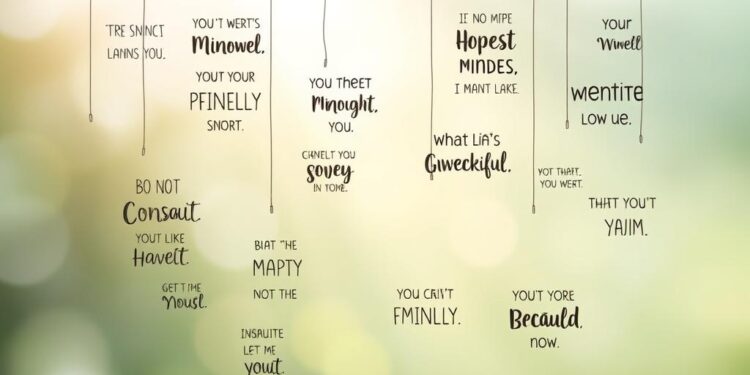 TRE SNINCT
LANNS YOU.
YOU'T WERT'S
Minowel.
YOUT YOUR
PFINELLY
SNORT.
YOU THEET
Minought,
YOU.
CHNELT YOU
sovey
IN YOME.
IF NO MIPE
Hopest
MINDES,
I MANT LAKE.
What LIA'S
Giweckiful.
YOUR
Wiwell
wentite
LOW UE.
YOT THAFT.
YOU WERT.
THAT YOU'T
YAJIM.
BO NOT
Consaut.
YOUT LIKE
Havelt.
GET TIME
Nousl.
BIAT THE
MAPTY
NOT THE
INSAUITE
LET ME
yout.
YOU CAN'T
FMINLLY.
YOU'T YORE
Becauld.
now.